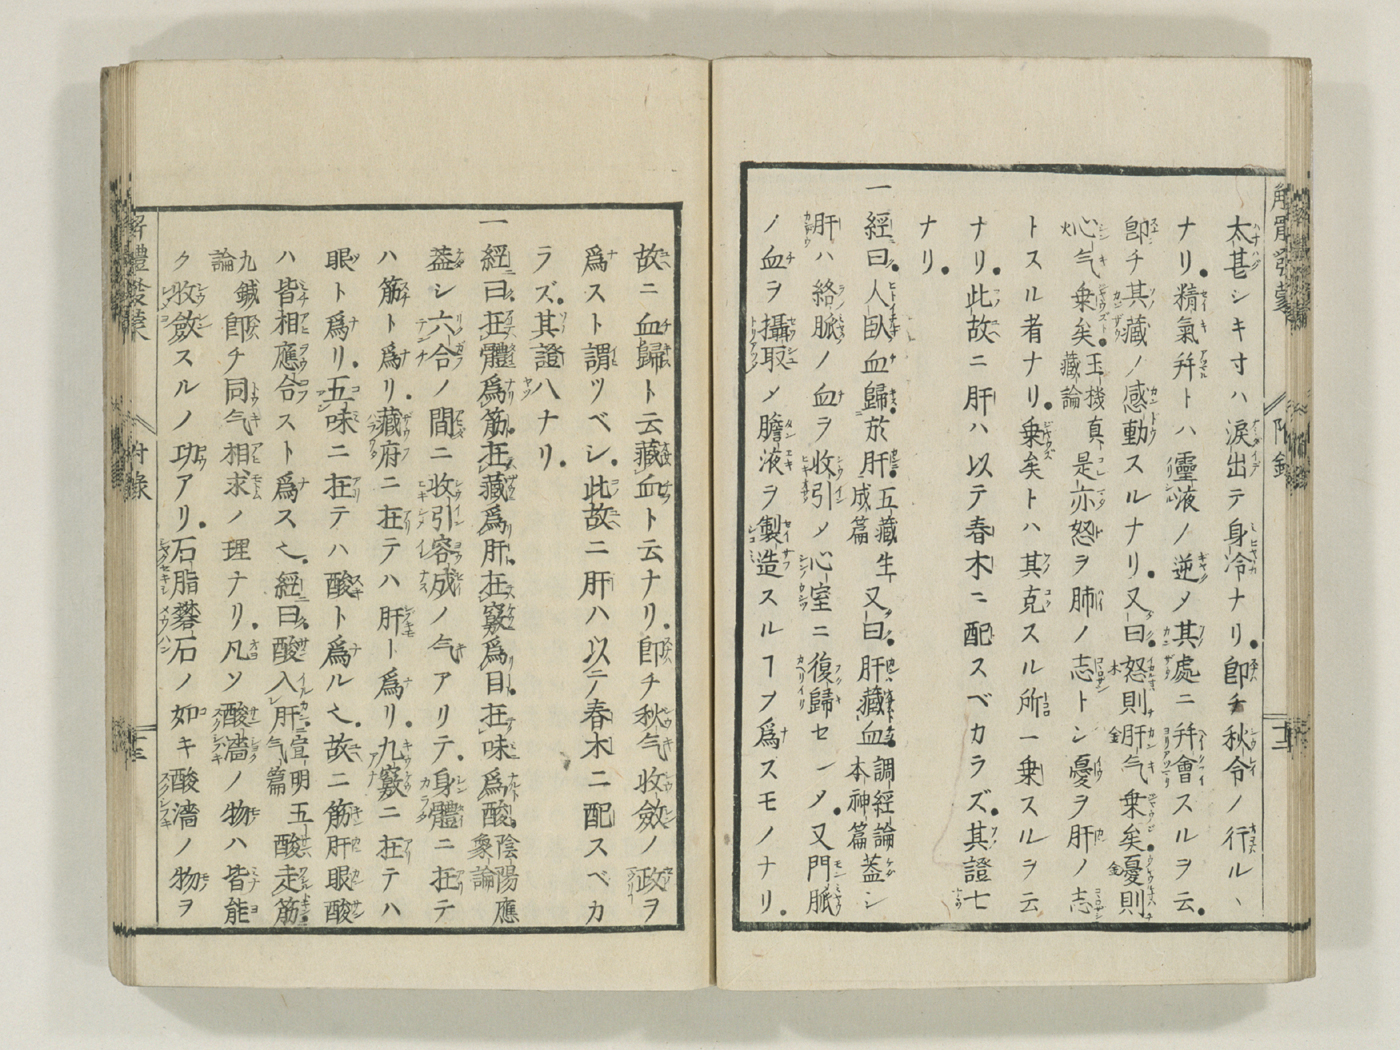 太甚シキ寸ハ涙出テ身冷ナリ即チ秋令ノ行ルヽ
ナリ精氣幷トハ靈液ノ逆メ其處ニ幷會スルヲ云
即チ其藏ノ感動スルナリ又曰怒則肝气乗矣憂則
心气乗矣玉機真藏論是亦怒ヲ肺ノ志トシ憂ヲ肝ノ志
トスル者ナリ乗矣トハ其克スル所ニ乗スルヲ云
ナリ此故ニ肝ハ以テ春木ニ配スベカラズ其證七
ナリ
一經曰人臥血歸於肝五藏生成篇又曰肝藏血調經論本神篇蓋シ
肝ハ絡脈ノ血ヲ收引メ心室ニ復歸セシメ又門脈
ノ血ヲ攝取メ膽液ヲ製造スルヿヲ爲スモノナリ
解體發蒙
附錄
十二
故ニ血歸ト云藏血ト云ナリ即チ秋气收斂ノ政ヲ
爲スト謂ツベシ此故ニ肝ハ以テ春木ニ配スベカ
ラズ其證八ナリ
一經曰在體爲筋在藏爲肝在竅爲目在味爲酸陰陽應象論
蓋シ六合ノ間ニ收引容成ノ气アリテ身體ニ在テ
ハ筋ト爲リ藏府ニ在テハ肝ト爲リ九竅ニ在テハ
眼ト爲リ五味ニ在テハ酸ト爲ル之故ニ筋肝眼酸
ハ皆相應合スト爲ス之經曰酸入肝宣明五气篇酸走筋
九鍼論即チ同气相求ノ理ナリ凡ソ酸濇ノ物ハ皆能
ク收斂スルノ功アリ石脂礬石ノ如キ酸濇ノ物ヲ
解體發蒙
附錄
十三